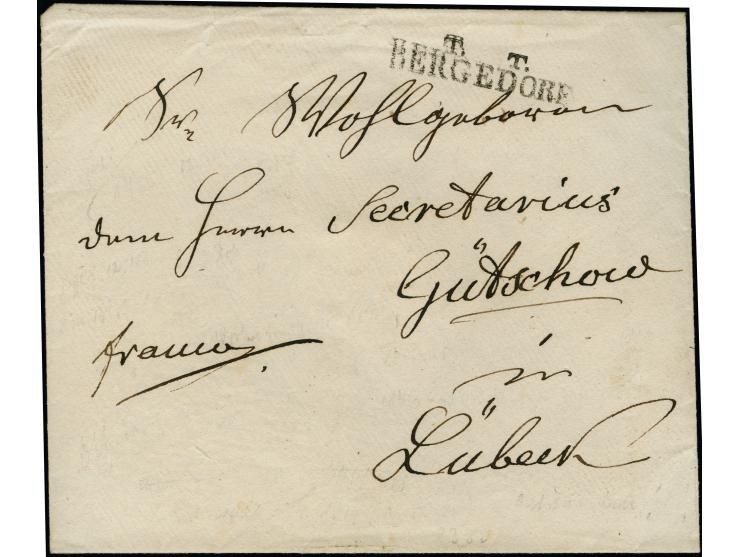 T. T.
BERGEDORF
Sr Wohlgeboren
dem Herrn Secretarius
Gütschow
franco
in
Lübeck